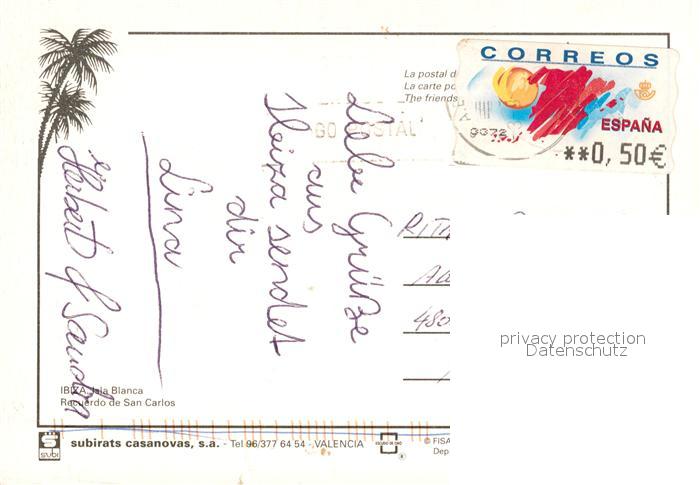 CORREOS
ESPAÑA
**0,50€
La postal d
La carte po
The friends
GO POSTAL
9972
Liebe Grüße
aus
Ibiza sendet
dir
Lina
Herbert & Sandra
RITA
480
privacy protection
Datenschutz
IBIZA. Isla Blanca
Recuerdo de San Carlos
SUBI
subirats casanovas, s.a. - Tel 96/377 64 54 - VALENCIA
© FISA
Dep